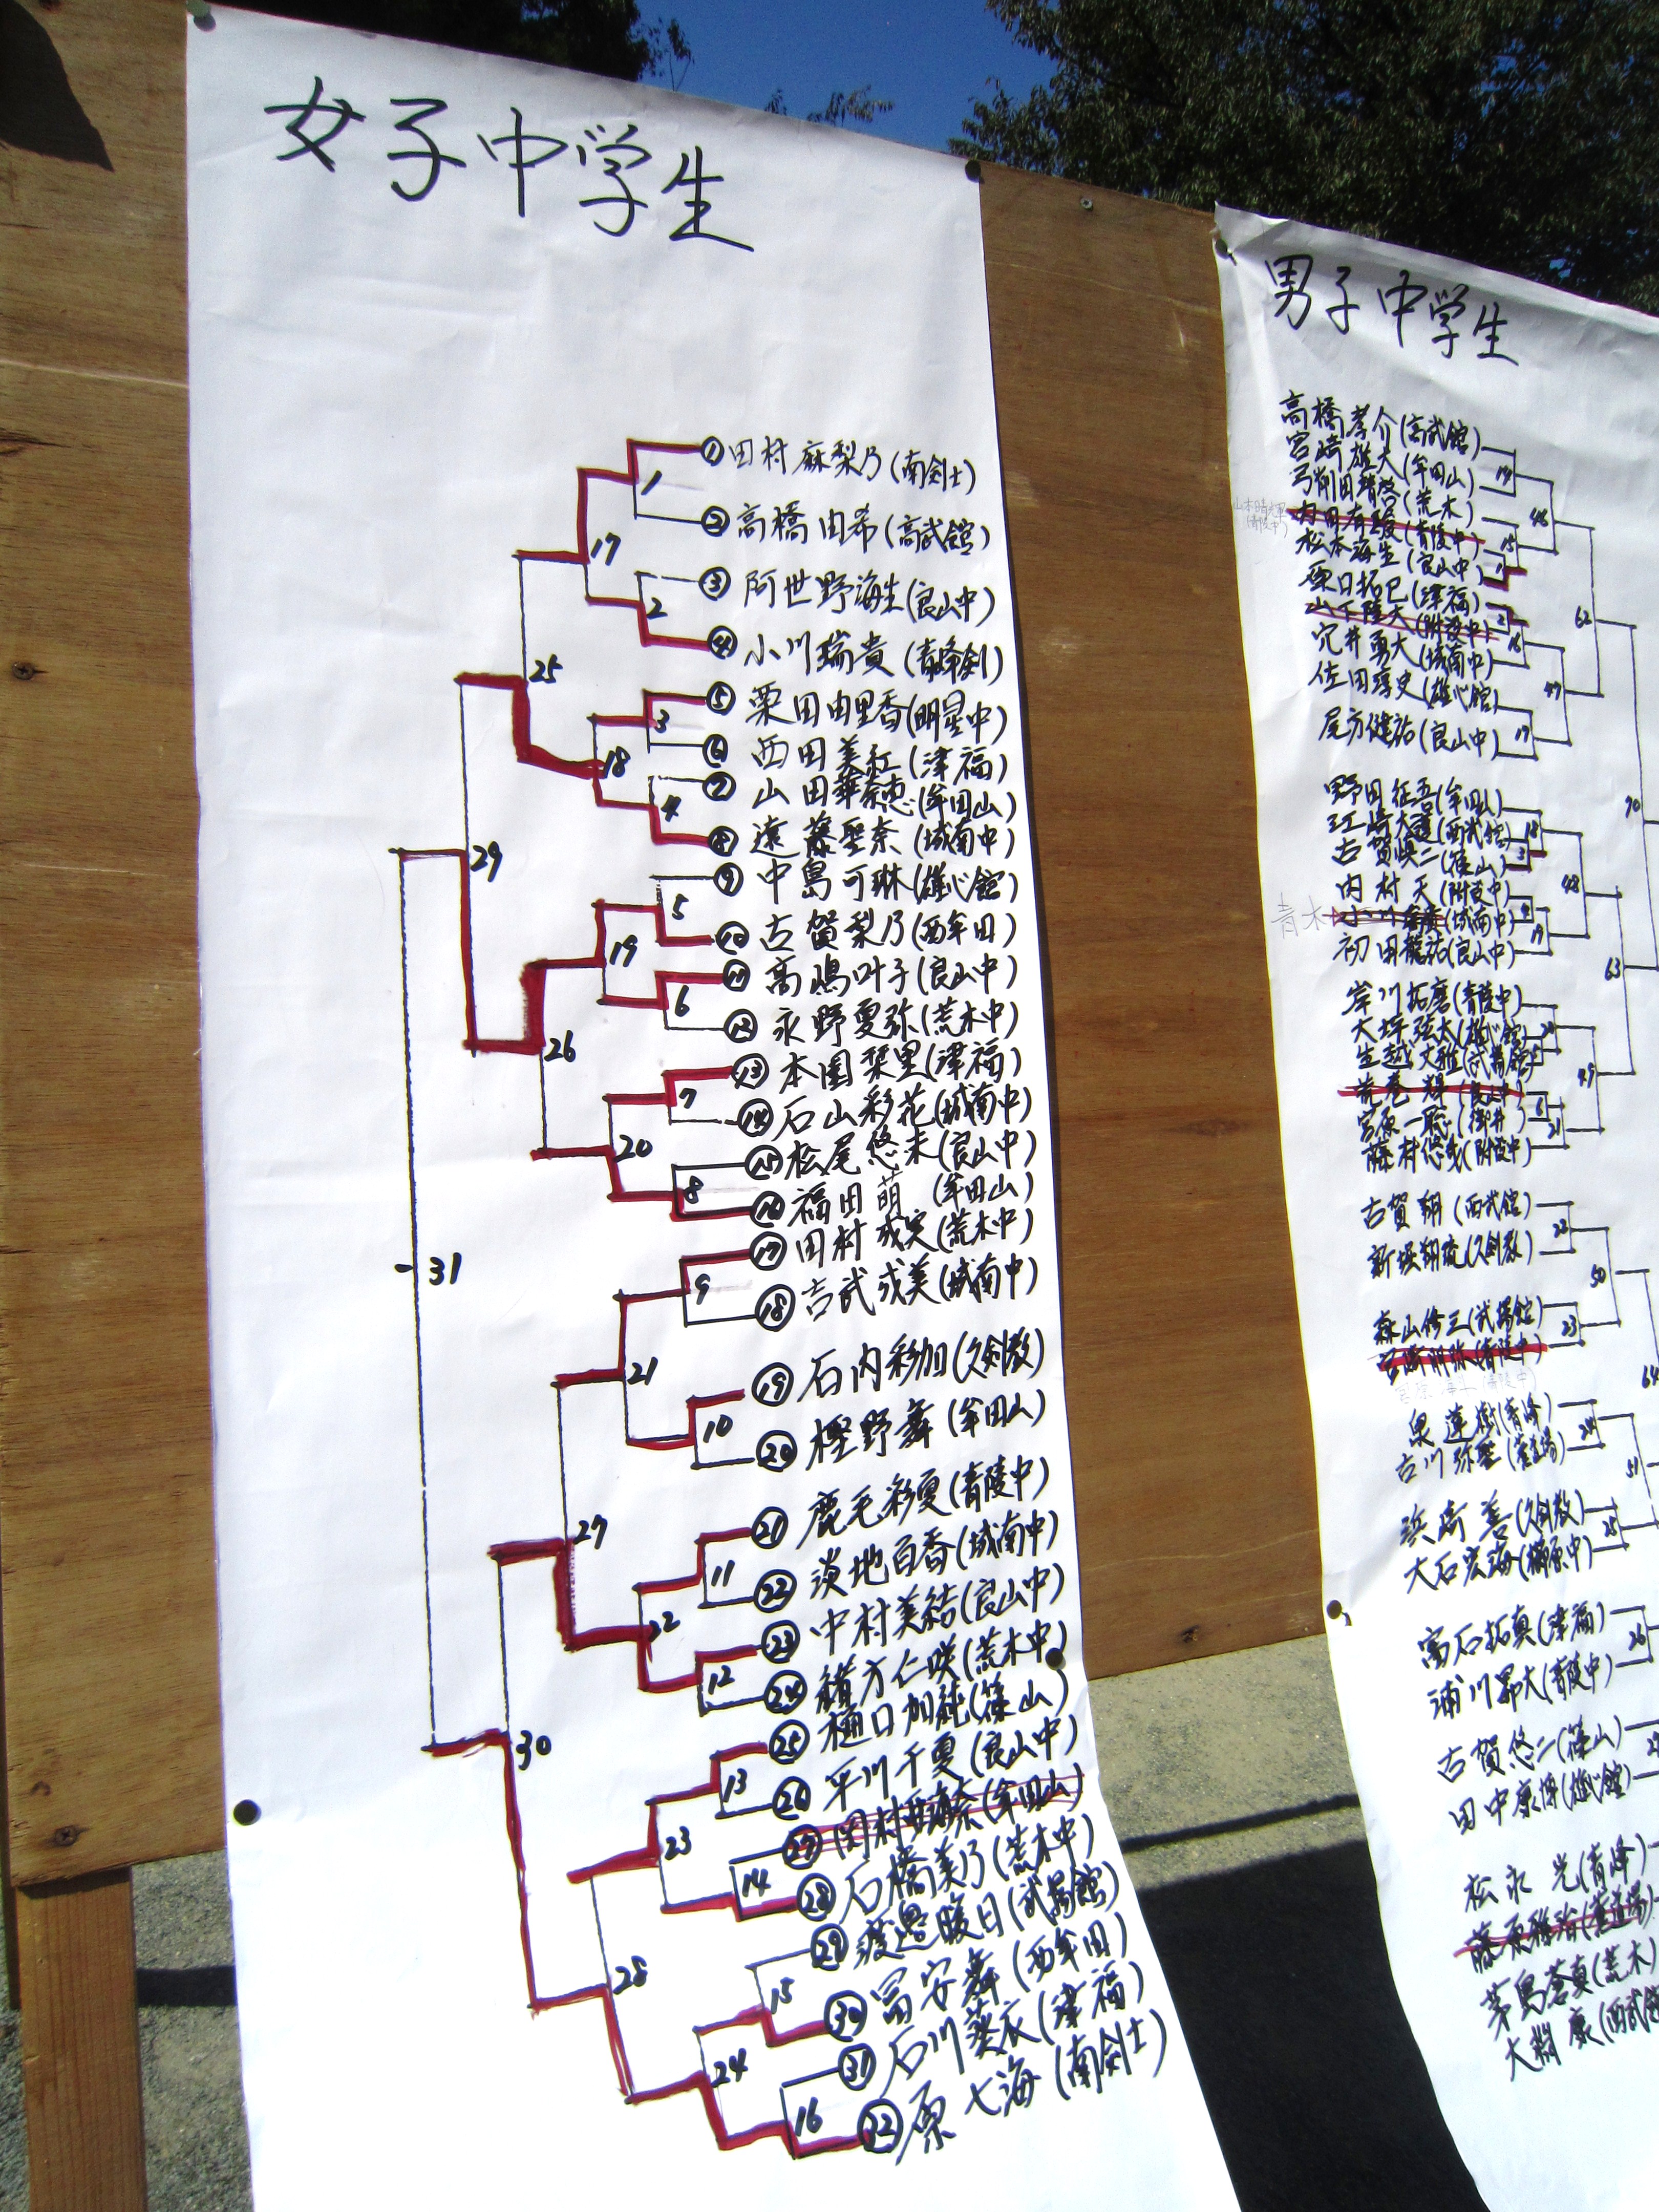 女子中学生
① 田村麻梨乃(南剣士)
② 高橋由希(高武館)
③ 阿世野海生(良山中)
④ 小川瑞貴(青峰剣)
⑤ 栗田由里香(明星中)
⑥ 西田美紅(津福)
⑦ 山田華奈恵(牟田山)
⑧ 遠藤聖奈(城南中)
⑨ 中島可琳(雄心館)
⑩ 古賀梨乃(西牟田)
⑪ 高嶋叶子(良山中)
⑫ 永野夏弥(荒木中)
⑬ 本園栞里(津福)
⑭ 石山彩花(城南中)
⑮ 松尾悠未(良山中)
⑯ 福田萌(牟田山)
⑰ 田村成実(荒木中)
⑱ 吉武成美(城南中)
⑲ 石内彩加(久剣教)
⑳ 樫野舞(牟田山)
㉑ 鹿毛彩夏(青陵中)
㉒ 淡地百香(城南中)
㉓ 中村美結(良山中)
㉔ 緒方仁咲(荒木中)
㉕ 樋口加純(篠山)
㉖ 平川千夏(良山中)
㉗ (牟田山)
㉘ 石橋美乃(荒木中)
㉙ 渡邉暖日(武揚館)
㉚ 冨安舞(西牟田)
㉛ 石川葵衣(津福)
㉜ 原七海(南剣士)
1
2
3
4
5
6
7
8
9
10
11
12
13
14
15
16
17
18
19
20
21
22
23
24
25
26
27
28
29
30
31
男子中学生
高橋孝介(高武館)
宮崎雄大(牟田山)
弓削田晴啓(荒木)
(青陵中)
松本海生(良山中)
原口拓巳(津福)
山下陸大(附設中)
穴井勇大(城南中)
佐田淳史(雄心館)
尾方健祐(良山中)
野田征吾(牟田山)
江崎大道(西武館)
古賀慎二(篠山)
内村天(附設中)
青木
(城南中)
初田龍祐(良山中)
岸川拓磨(青陵中)
大坪弦太(雄心館)
生越文雅(武揚館)
荒巻輝(良山中)
宮原一聡(御井)
藤村悠(附設中)
古賀翔(西武館)
新堀翔琉(久剣教)
森山修三(武揚館)
(青陵中)
泉蓮樹(青峰)
古川弥聖
浜崎善(久剣教)
大石宏海(櫛原中)
富石拓真(津福)
浦川昂大(青陵中)
古賀悠二(篠山)
田中康博(雄心館)
松永光(青峰)
藤原雅治
茅島蒼真(荒木)
大渕康(西武館